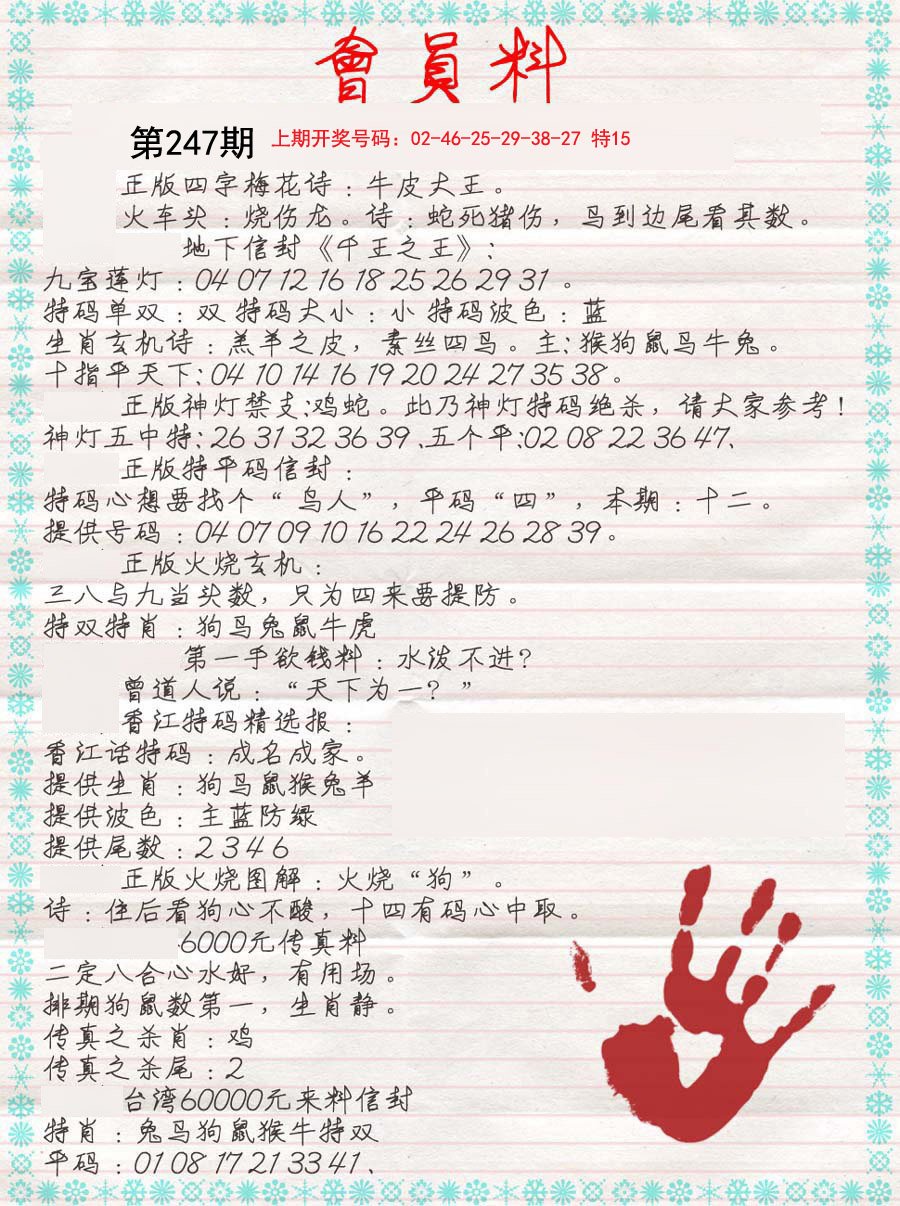 會員料
第247期 上期开奖号码：02-46-25-29-38-27 特15
正版四字梅花诗：牛皮大王。
火车头：烧伤龙。诗：蛇死猪伤，鸟到边尾看其数。
地下信封《千王之王》：
九宝莲灯：04 07 12 16 18 25 26 29 31 。
特码单双：双 特码大小：小 特码波色：蓝
生肖玄机诗：羔羊之皮，素丝四鸟。主：猴狗鼠鸟牛兔。
十指平天下：04 10 14 16 19 20 24 27 35 38。
正版神灯禁支:鸡蛇。此乃神灯特码绝杀，请大家参考！
神灯五中特：26 31 32 36 39 、五个平:02 08 22 36 47、
正版特平码信封：
特码心想要找个“鸟人”，平码“四”，本期：十二。
提供号码：04 07 09 10 16 22 24 26 28 39。
正版火烧玄机：
三八与九当头数，只为四来要提防。
特双特肖：狗鸟兔鼠牛虎
第一手欲钱料：水泼不进？
曾道人说：“天下为一？”
香江特码精选报：
香江话特码：成名成家。
提供生肖：狗鸟鼠猴兔羊
提供波色：主蓝防绿
提供尾数：2 3 4 6
正版火烧图解：火烧“狗”。
诗：住后看狗心不酸，十四有码心中取。
6000元传真料
二定八合心水好，有用场。
排期狗鼠数第一，生肖静。
传真之杀肖：鸡
传真之杀尾：2
台湾60000元来料信封
特肖：兔鸟狗鼠猴牛特双
平码：01 08 17 21 33 41、